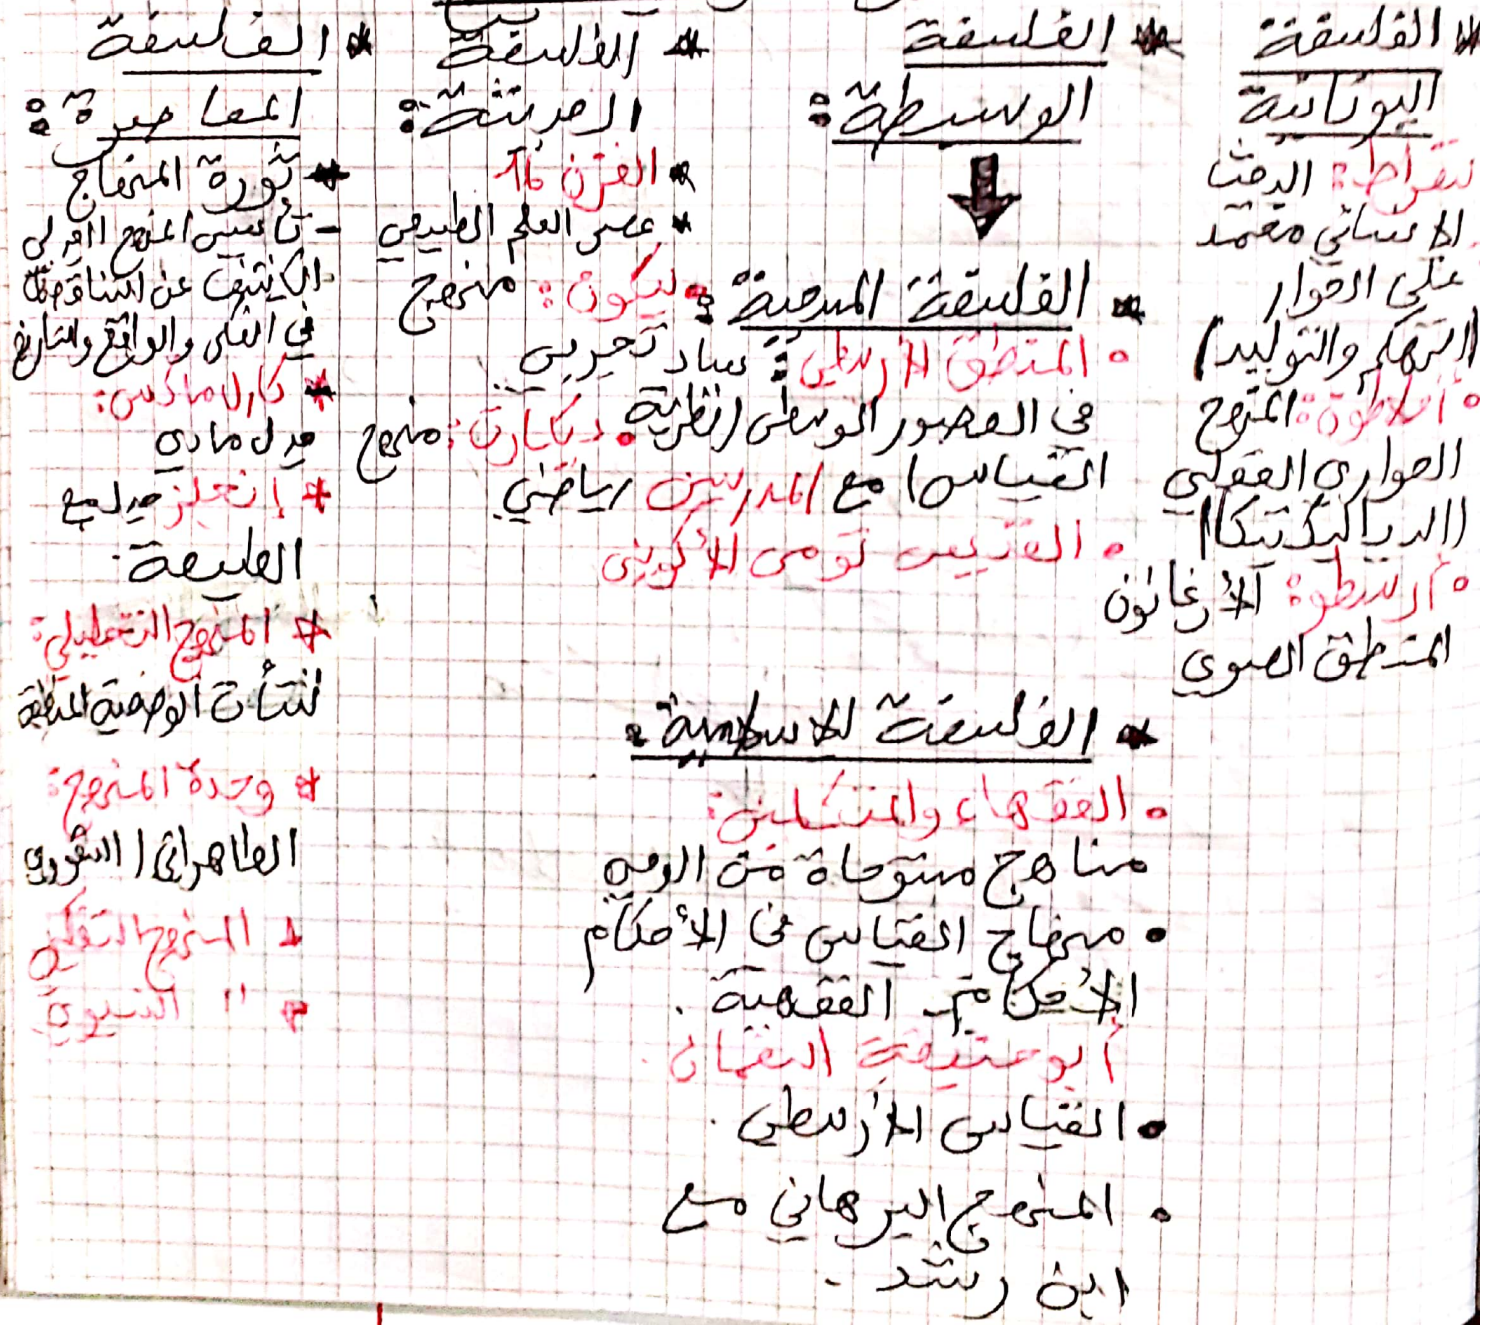 * الفلسفة
اليونانية
سقراط: البحث
الانساني معتمد
على الحوار
(التهكم والتوليد)
• أفلاطون: المنهج
الحواري العقلي
(الديالكتيكا)
• أرسطو: الأرغانون
المنطق الصوري
* الفلسفة
الوسيطة:
* الفلسفة المدرسية:
• المنطق الأرسطي: ساد
في العصور الوسطى (نظرية
القياس) مع المدرسين
• القديس توما الأكويني
* الفلسفة الاسلامية:
• الفقهاء والمتكلمين:
مناهج مستوحاة من الوحي
• منهاج القياس في الأحكام
الأحكام الفقهية.
أبو حنيفة النعمان.
• القياس الأرسطي.
• المنهج البرهاني مع
ابن رشد.
* الفلسفة
الحديثة:
* القرن 16
* عصر العلم الطبيعي
• بيكون: منهج
تجريبي
• ديكارت: منهج
رياضي
* الفلسفة
المعاصرة:
* ثورة المنهاج
- تأسيس المنهج الجدلي
الكشف عن التناقضات
في الفكر والواقع والتاريخ
* كارل ماركس:
جدل مادي
* إنجلز جدل مع
الطبيعة.
* المنهج التحليلي:
نشأت الوضعية المنطقية
* وحدة المنهج:
الظاهراتي /
* المنهج التفكيكي
* " البنيوي